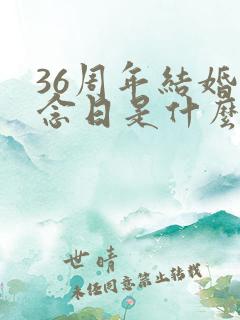 36周年結婚
念日是什麼
世晴
未经同意禁止转载